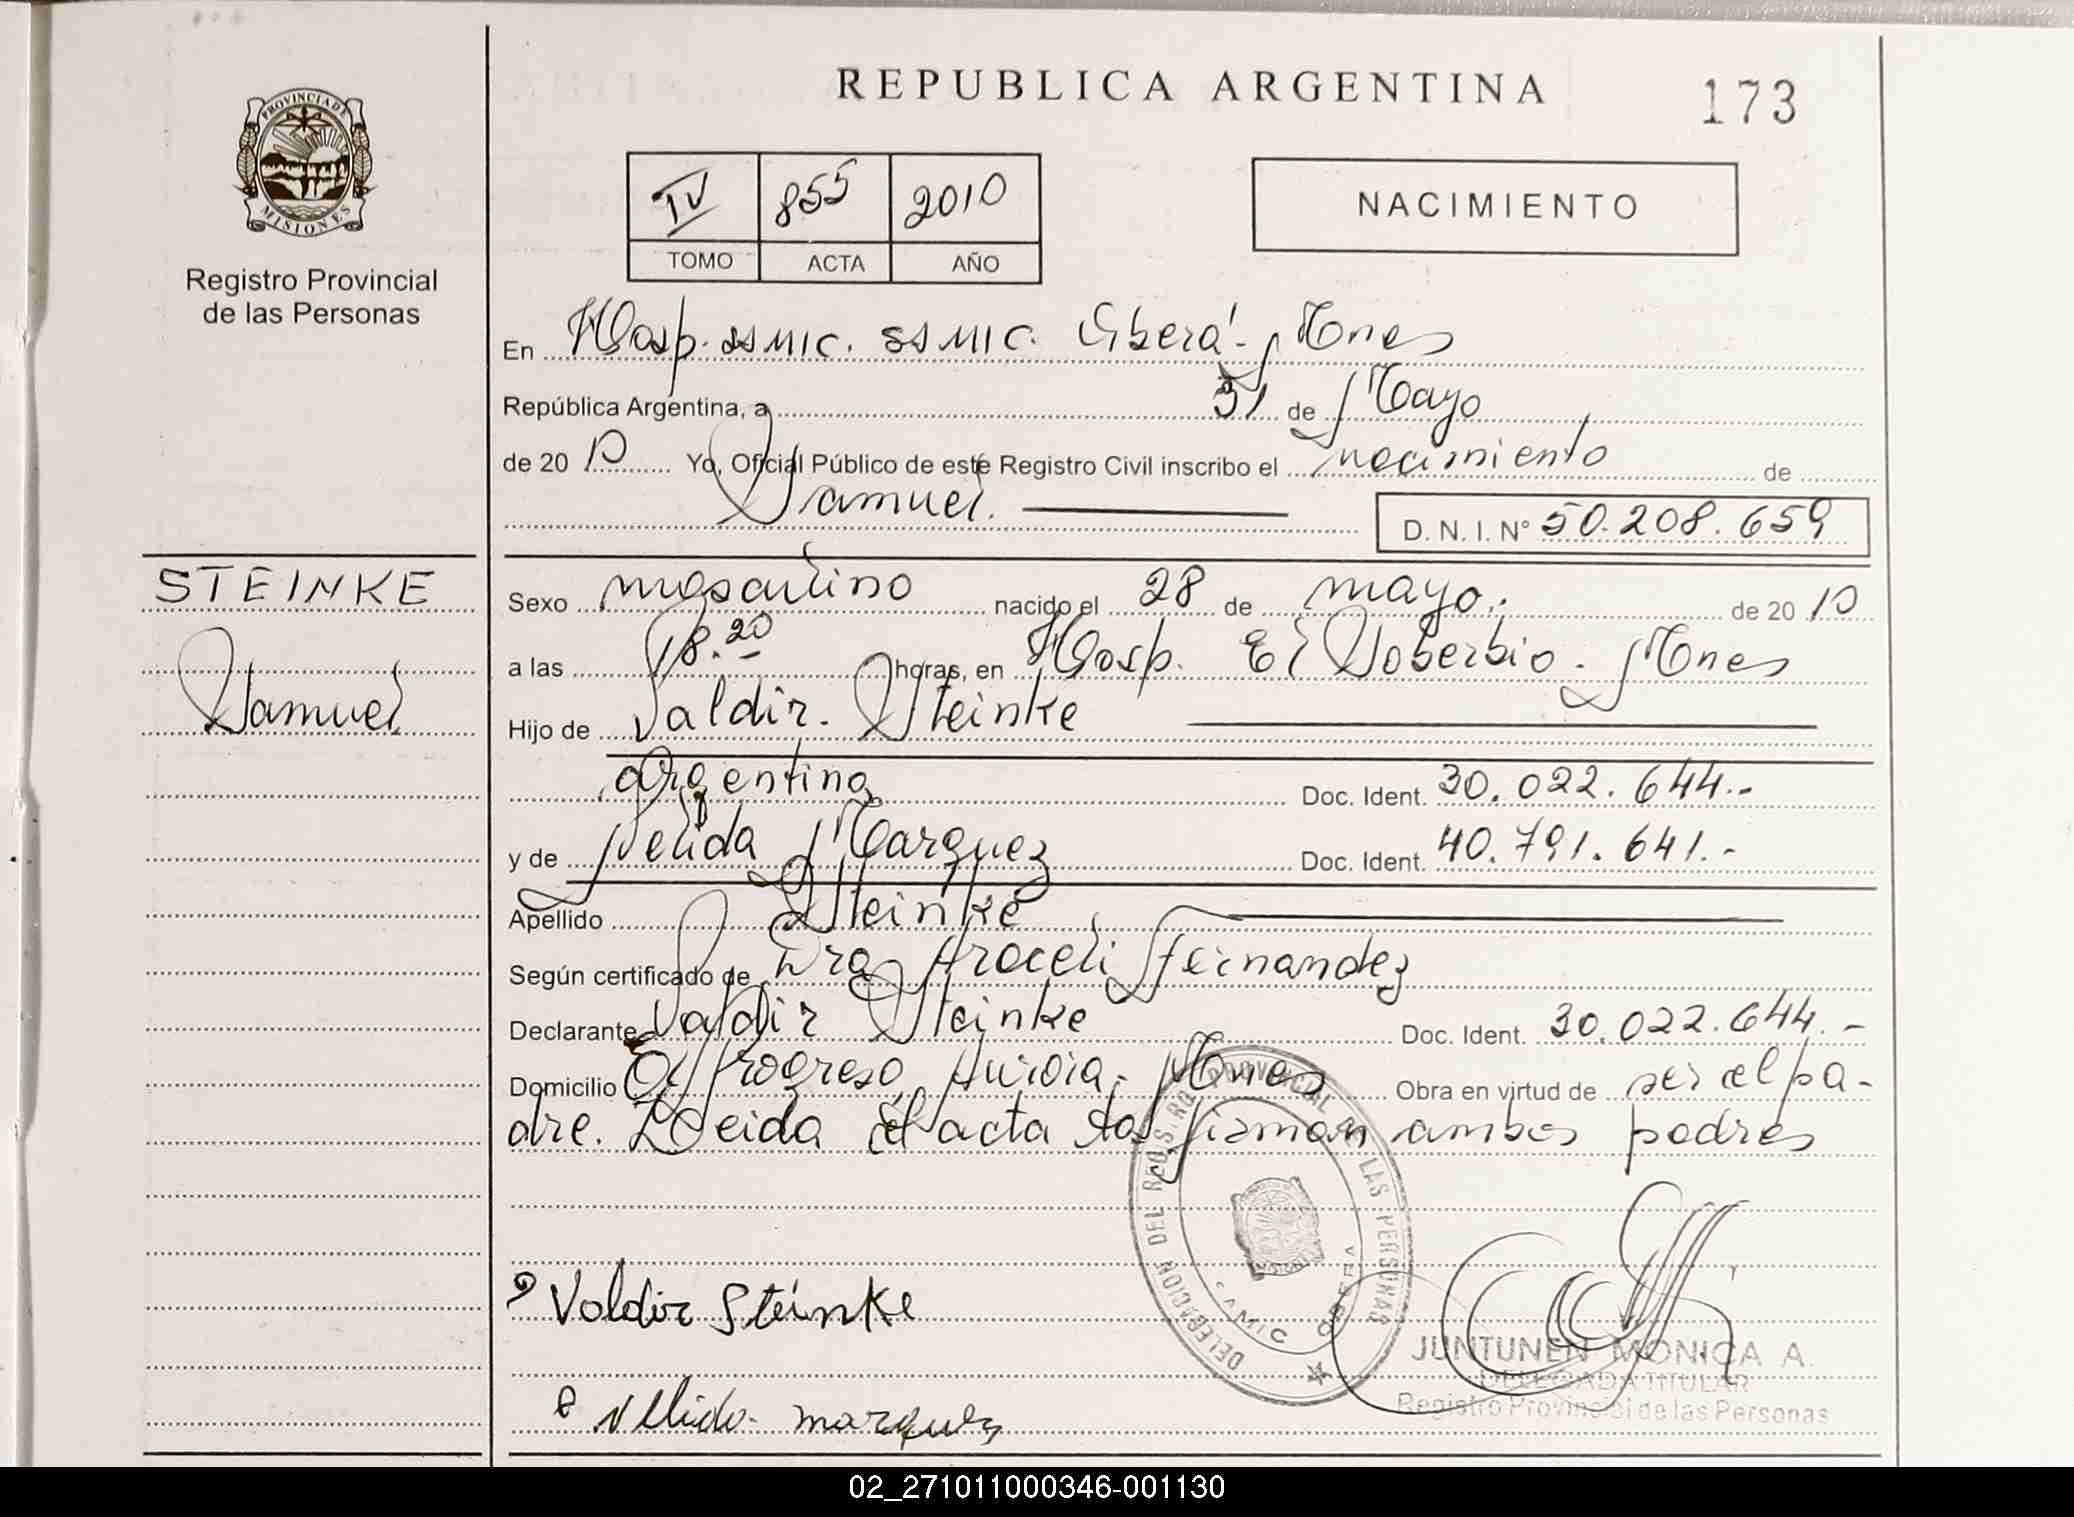 REPUBLICA ARGENTINA
173
PROVINCIA DE
MISIONES
Registro Provincial
de las Personas
IV 855 2010
TOMO ACTA AÑO
NACIMIENTO
En Hosp. SSMIC. SSMIC. Oberá - Mnes
República Argentina, a 31 de Mayo
de 20 10 Yo, Oficial Público de este Registro Civil inscribo el nacimiento de
Samuel.
D. N. I. N° 50.208.659
STEINKE
Samuel
Sexo masculino nacido el 28 de mayo. de 20 10
a las 18.20 horas, en Hosp. El Soberbio - Mnes
Hijo de Valdir. Steinke
argentino Doc. Ident. 30.022.644.-
y de Nelida Marquez Doc. Ident. 40.791.641.-
Apellido Steinke
Según certificado de Dra Araceli Fernandez
Declarante Valdir Steinke Doc. Ident. 30.022.644.-
Domicilio El Progreso Mnes Obra en virtud de ser el pa-
dre. Leida el acta firman ambos padres
DELEGACION DEL REGISTRO PROVINCIAL DE LAS PERSONAS
Valdir Steinke
Nelida marques
JUNTUNEN MONICA A.
DELEGADA TITULAR
Registro Provincial de las Personas
02_271011000346-001130